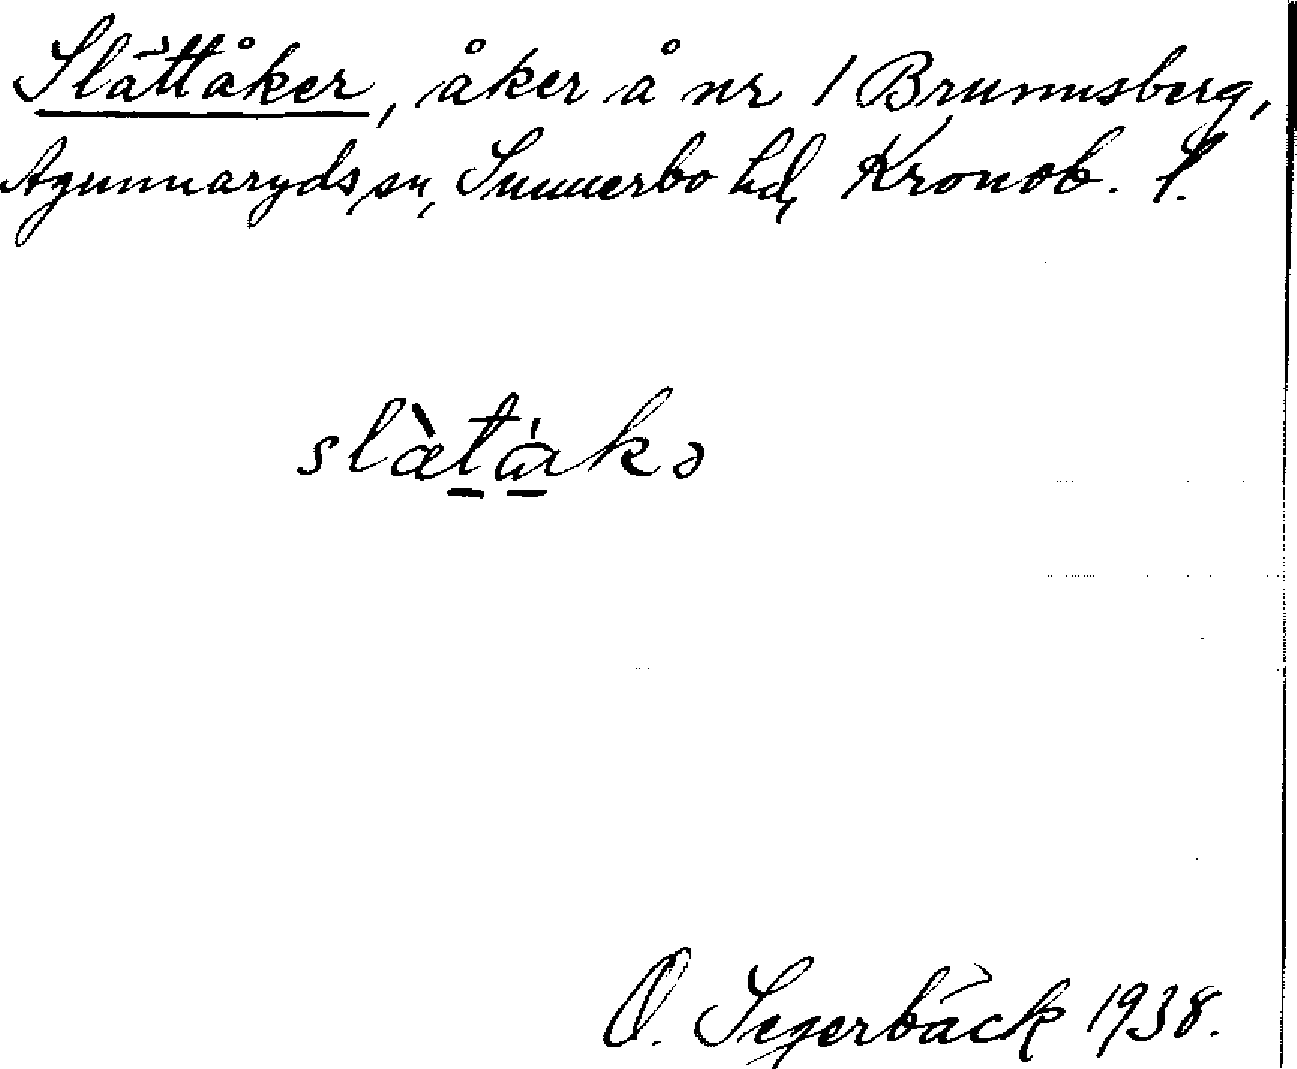 Slättåker, åker å nr 1 Brunnsberg,
Agunnaryds sn, Sunnerbo hd, Kronob. l.
slæ̀ta̍kə
O. Segerbäck 1938.